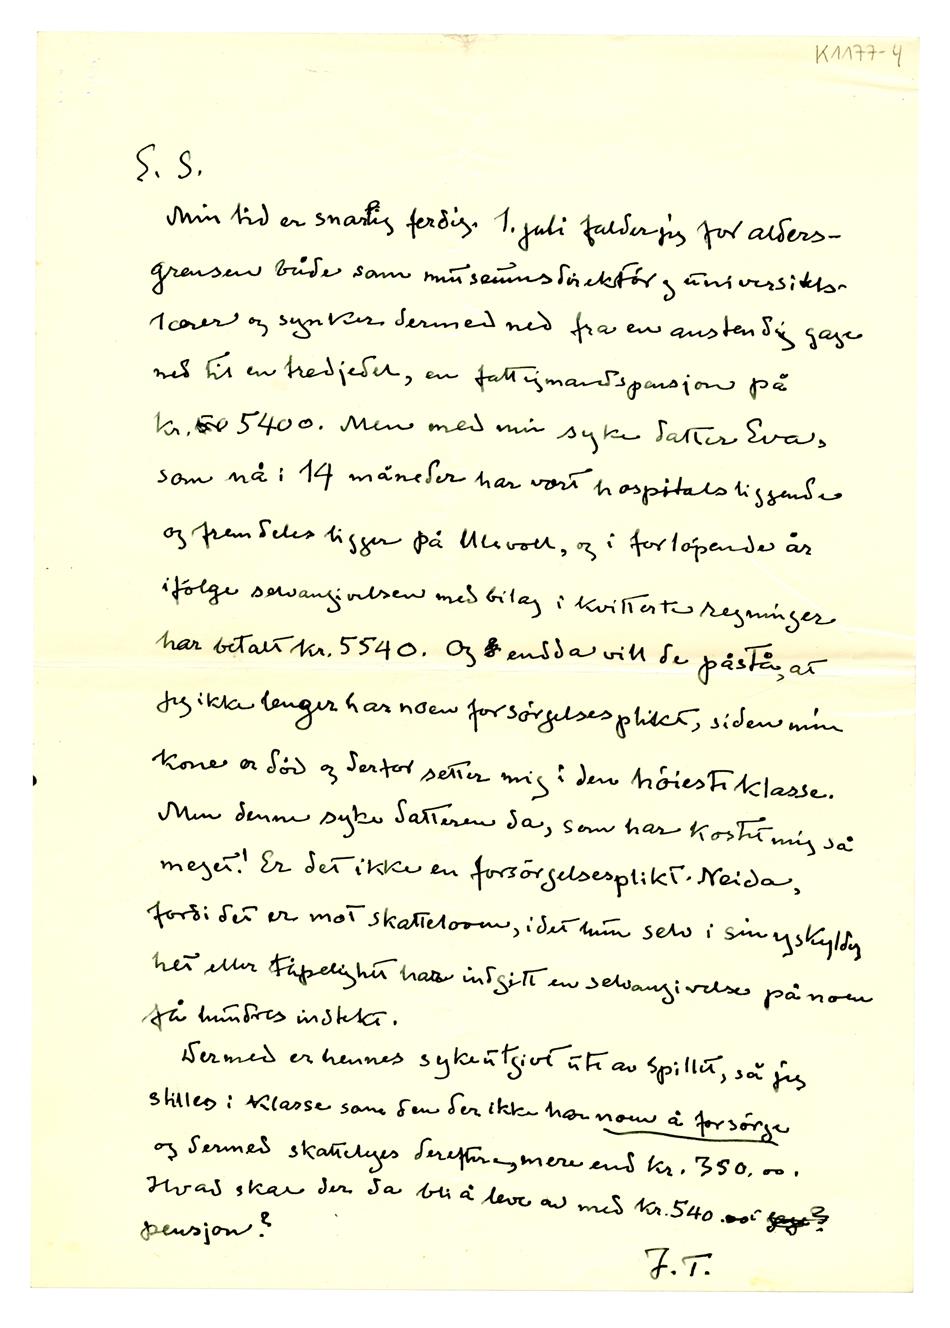 K1177-4
E. S.
Min tid er snarlig ferdig. 1. juli falder jeg for alders-
grensen både som museumsdirektør og universitets-
lærer og synker dermed ned fra en anstendig gage
ned til en tredjedel, en fattigmandspensjon på
kr. 5400. Men med min syke datter Eva,
som nå i 14 måneder har vært hospitalsliggende
og fremdeles ligger på Ullevoll, og i forløpende år
ifølge selvangivelsen med bilag i kvitterte regninger
har betalt kr. 5540. Og endda vill de påstå, at
jeg ikke lenger har noen forsørgelsesplikt, siden min
kone er död og derfor setter mig i den höieste klasse.
Men denne syke datteren da, som har kostet mig så
meget! Er det ikke en forsørgelsesplikt. Neida,
fordi det er mot skatteloven, idet hun selv i sin uskyldig
het eller tåpelighet har indgitt en selvangivelse på noen
få hundres indtekt.
Dermed er hennes sykeutgivt ute av spillet, så jeg
stilles i klasse som den der ikke har noen å forsørge
og dermed skattelyges derefter, mere end kr. 350.00.
Hvad skal der da bli å leve av med kr. 540 i
pensjon?
J. T.